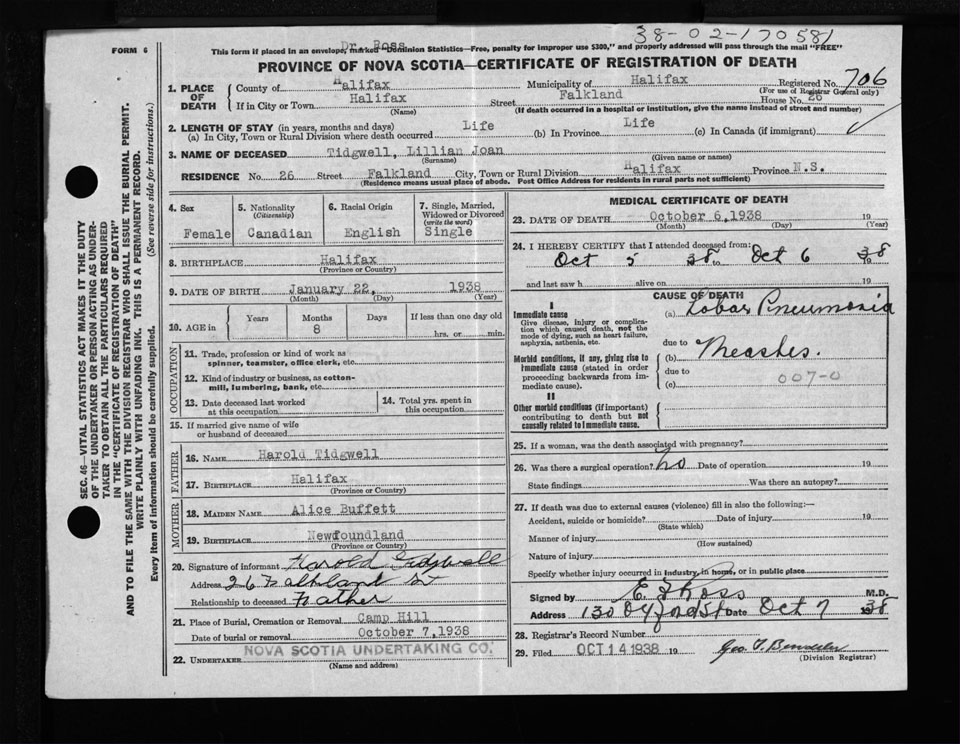 38-02-170581
FORM 6
This form if placed in an envelope, marked "Dominion Statistics—Free, penalty for improper use $300," and properly addressed will pass through the mail "FREE"
Dr. Ross
PROVINCE OF NOVA SCOTIA—CERTIFICATE OF REGISTRATION OF DEATH
1. PLACE OF DEATH
County of Halifax Municipality of Halifax Registered No. 706
(For use of Registrar General only)
If in City or Town Halifax Street Falkland House No. 26
(Name) (If death occurred in a hospital or institution, give the name instead of street and number)
2. LENGTH OF STAY (in years, months and days)
(a) In City, Town or Rural Division where death occurred Life (b) In Province Life (c) In Canada (if immigrant)
3. NAME OF DECEASED Tidgwell, Lillian Joan
(Surname) (Given name or names)
RESIDENCE No. 26 Street Falkland City, Town or Rural Division Halifax Province N.S.
(Residence means usual place of abode. Post Office Address for residents in rural parts not sufficient)
4. Sex
Female
5. Nationality
(Citizenship)
Canadian
6. Racial Origin
English
7. Single, Married, Widowed or Divorced
(write the word)
Single
8. BIRTHPLACE Halifax
(Province or Country)
9. DATE OF BIRTH January 22, 1938
(Month) (Day) (Year)
10. AGE in Years Months Days If less than one day old
8 hrs. or min.
OCCUPATION
11. Trade, profession or kind of work as
spinner, teamster, office clerk, etc.
12. Kind of industry or business, as cotton-
mill, lumbering, bank, etc.
13. Date deceased last worked
at this occupation
14. Total yrs. spent in
this occupation
15. If married give name of wife
or husband of deceased
FATHER
16. NAME Harold Tidgwell
17. BIRTHPLACE Halifax
(Province or Country)
MOTHER
18. MAIDEN NAME Alice Buffett
19. BIRTHPLACE Newfoundland
(Province or Country)
20. Signature of informant Harold Tidgwell
Address 26 Falkland St
Relationship to deceased Father
21. Place of Burial, Cremation or Removal Camp Hill
Date of burial or removal October 7, 1938
22. UNDERTAKER NOVA SCOTIA UNDERTAKING CO.
(Name and address)
MEDICAL CERTIFICATE OF DEATH
23. DATE OF DEATH October 6, 1938 19
(Month) (Day) (Year)
24. I HEREBY CERTIFY that I attended deceased from:
Oct 5 38 to Oct 6 1938
and last saw h alive on 19
CAUSE OF DEATH
I
Immediate cause
Give disease, injury or complica-
tion which caused death, not the
mode of dying, such as heart failure,
asphyxia, asthenia, etc.
(a) Lobar Pneumonia
due to
Morbid conditions, if any, giving rise to
immediate cause (stated in order
proceeding backwards from im-
mediate cause).
(b) Measles.
due to
(c) 007-0
II
Other morbid conditions (if important)
contributing to death but not
causally related to immediate cause.
25. If a woman, was the death associated with pregnancy?
26. Was there a surgical operation? No Date of operation 19
State findings Was there an autopsy?
27. If death was due to external causes (violence) fill in also the following:—
Accident, suicide or homicide? Date of injury 19
(State which)
Manner of injury
(How sustained)
Nature of injury
Specify whether injury occurred in industry, in home, or in public place
Signed by M.D.
Address 130 Oxford St Date Oct 7 1938
28. Registrar's Record Number
29. Filed OCT 14 1938 19
(Division Registrar)
SEC. 46—VITAL STATISTICS ACT MAKES IT THE DUTY
OF THE UNDERTAKER OR PERSON ACTING AS UNDER-
TAKER TO OBTAIN ALL THE PARTICULARS REQUIRED
IN THE "CERTIFICATE OF REGISTRATION OF DEATH"
AND TO FILE THE SAME WITH THE DIVISION REGISTRAR WHO SHALL ISSUE THE BURIAL PERMIT.
WRITE PLAINLY WITH UNFADING INK. THIS IS A PERMANENT RECORD.
Every item of information should be carefully supplied. (See reverse side for instructions.)